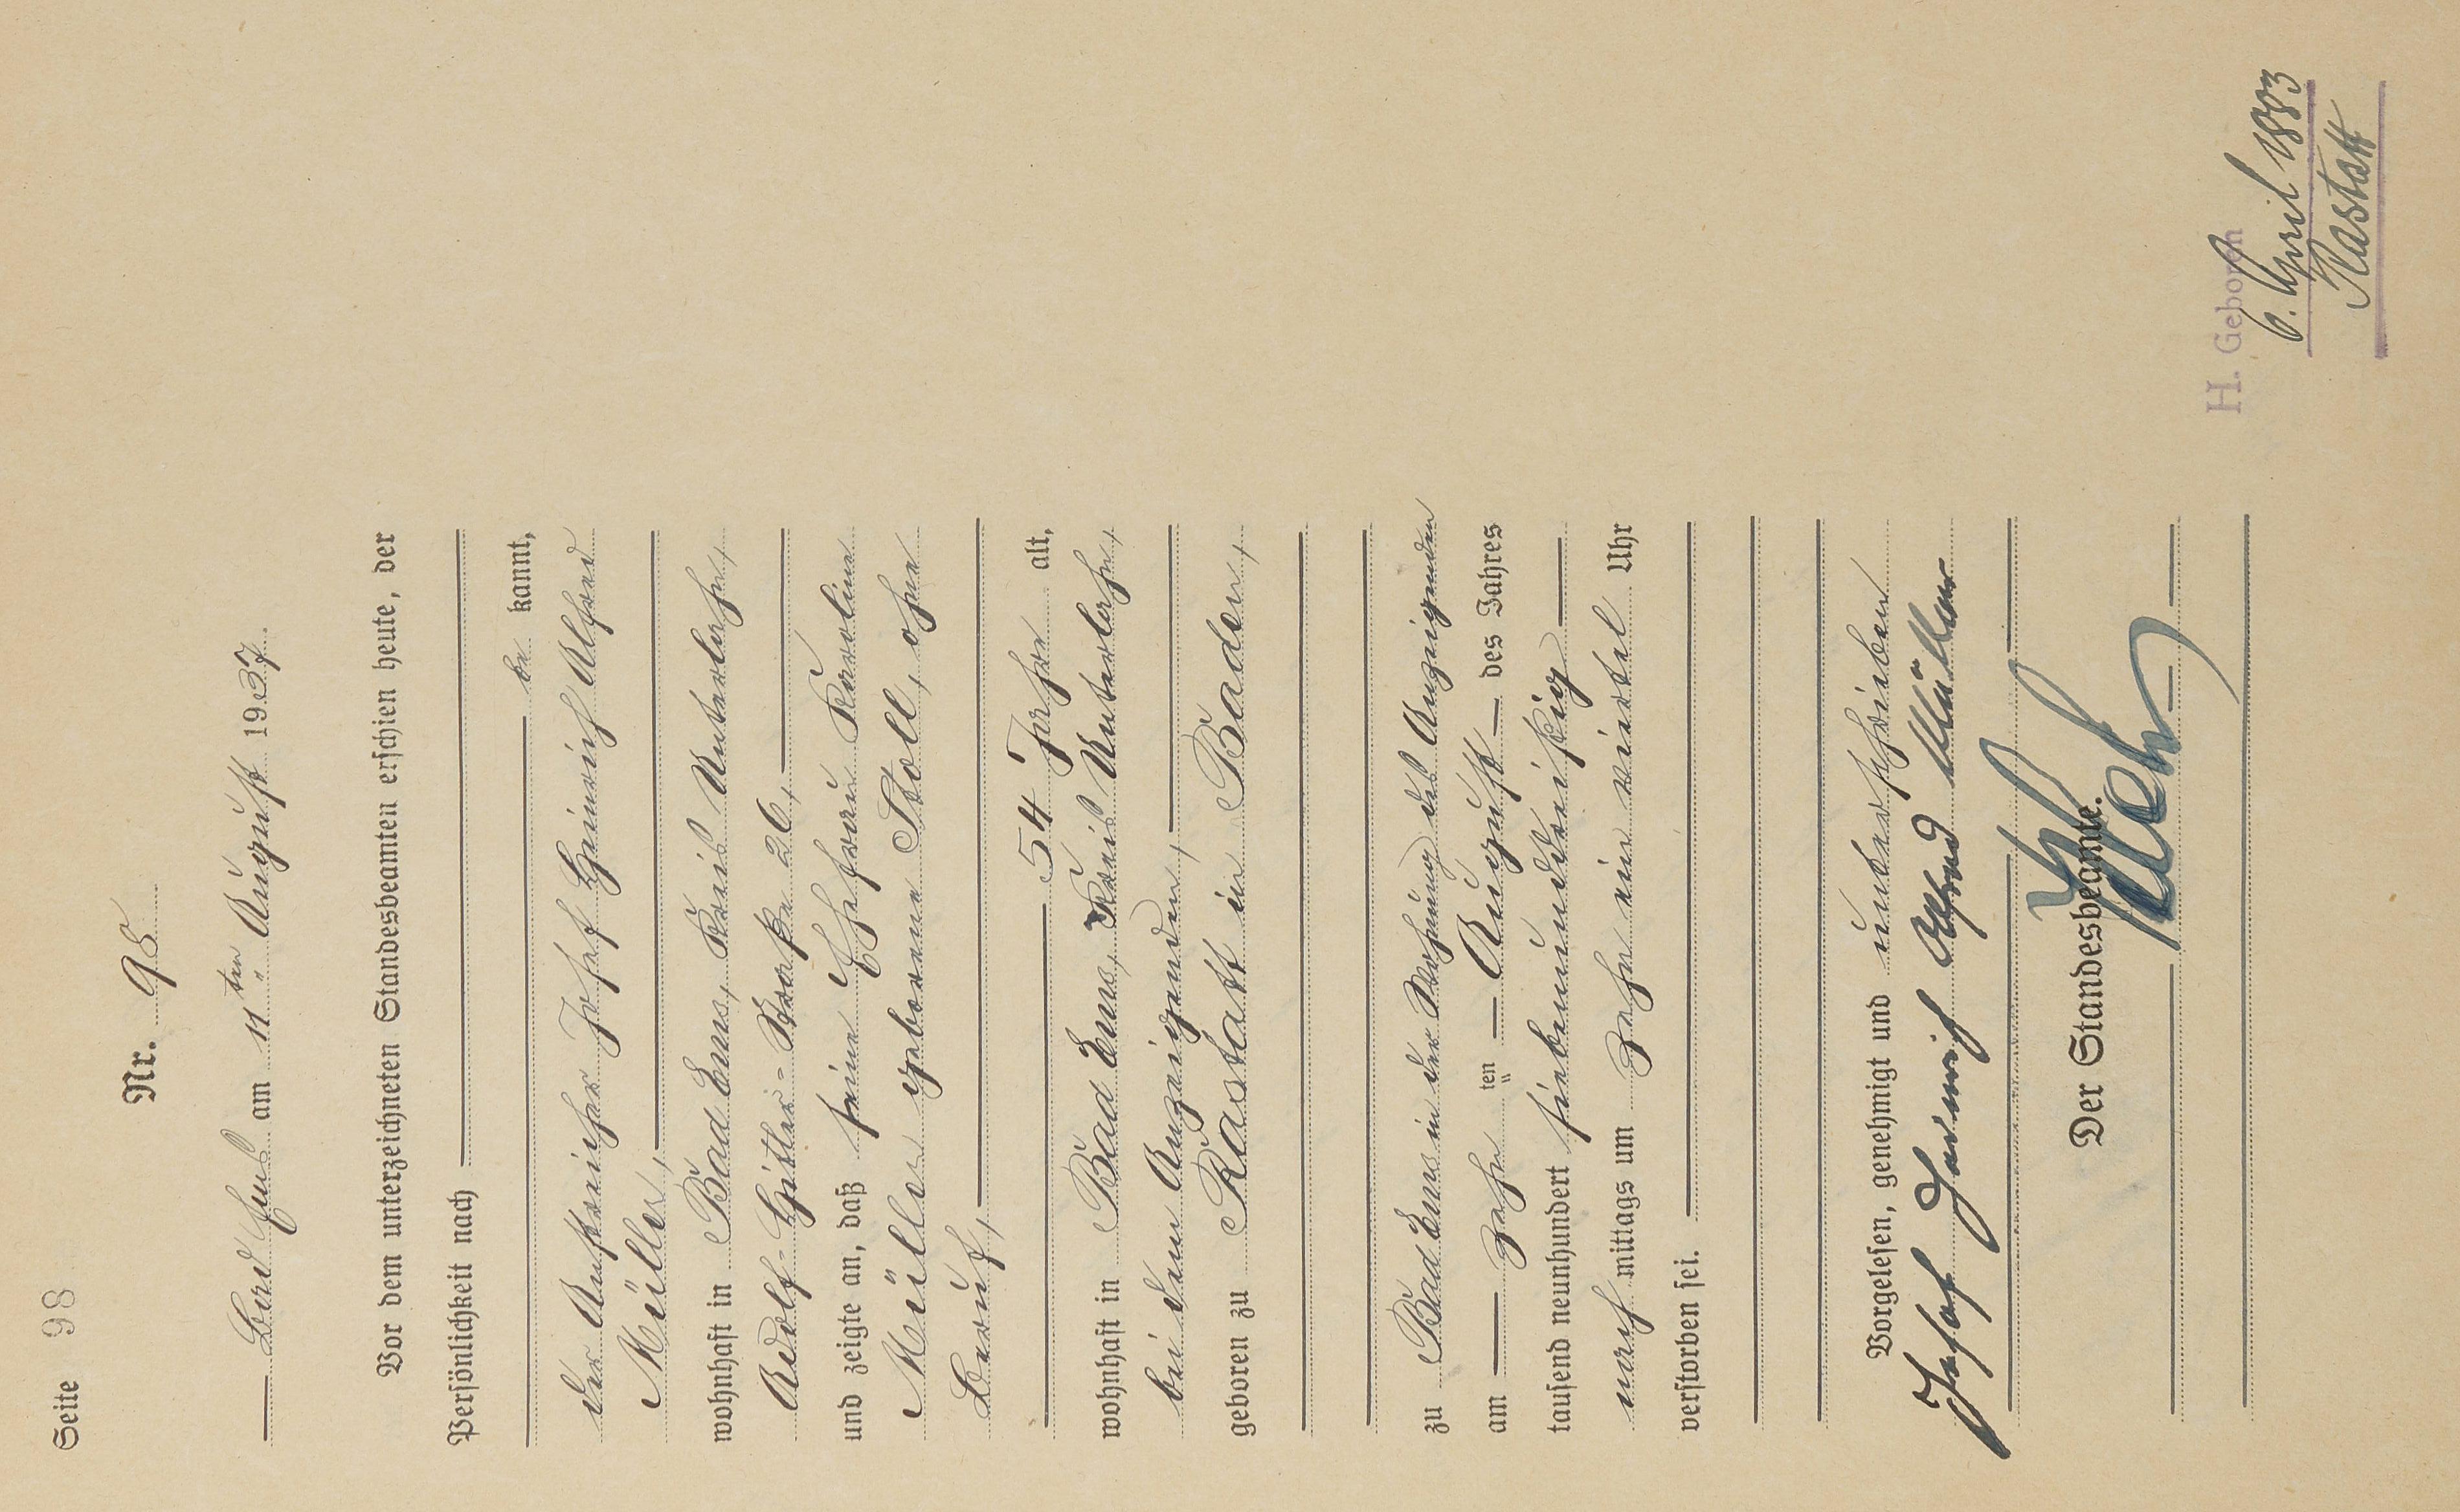 Seite 98
Nr. 98
Bad Ems am 11ten August 1937.
Vor dem unterzeichneten Standesbeamten erschien heute, der
Persönlichkeit nach
be kannt,
der Anstreicher Josef Heinrich Alfred
Müller,
wohnhaft in Bad Ems, Kreis Unterlahn,
Adolf-Hitler-Straße 26,
und zeigte an, daß seine Ehefrau Karoline
Müller geborene Stoll, ohne
Beruf,
54 Jahre alt,
wohnhaft in Bad Ems, Kreis Unterlahn,
bei dem Anzeigenden,
geboren zu Rastatt in Baden,
zu Bad Ems in der Wohnung des Anzeigenden
am zehn ten August des Jahres
tausend neunhundert siebenunddreißig
nach mittags um zehn ein viertel Uhr
verstorben sei.
Vorgelesen, genehmigt und unterschrieben
Josef Heinrich Alfred Müller
Der Standesbeamte.
H. Geboren
6. April 1883
Rastatt